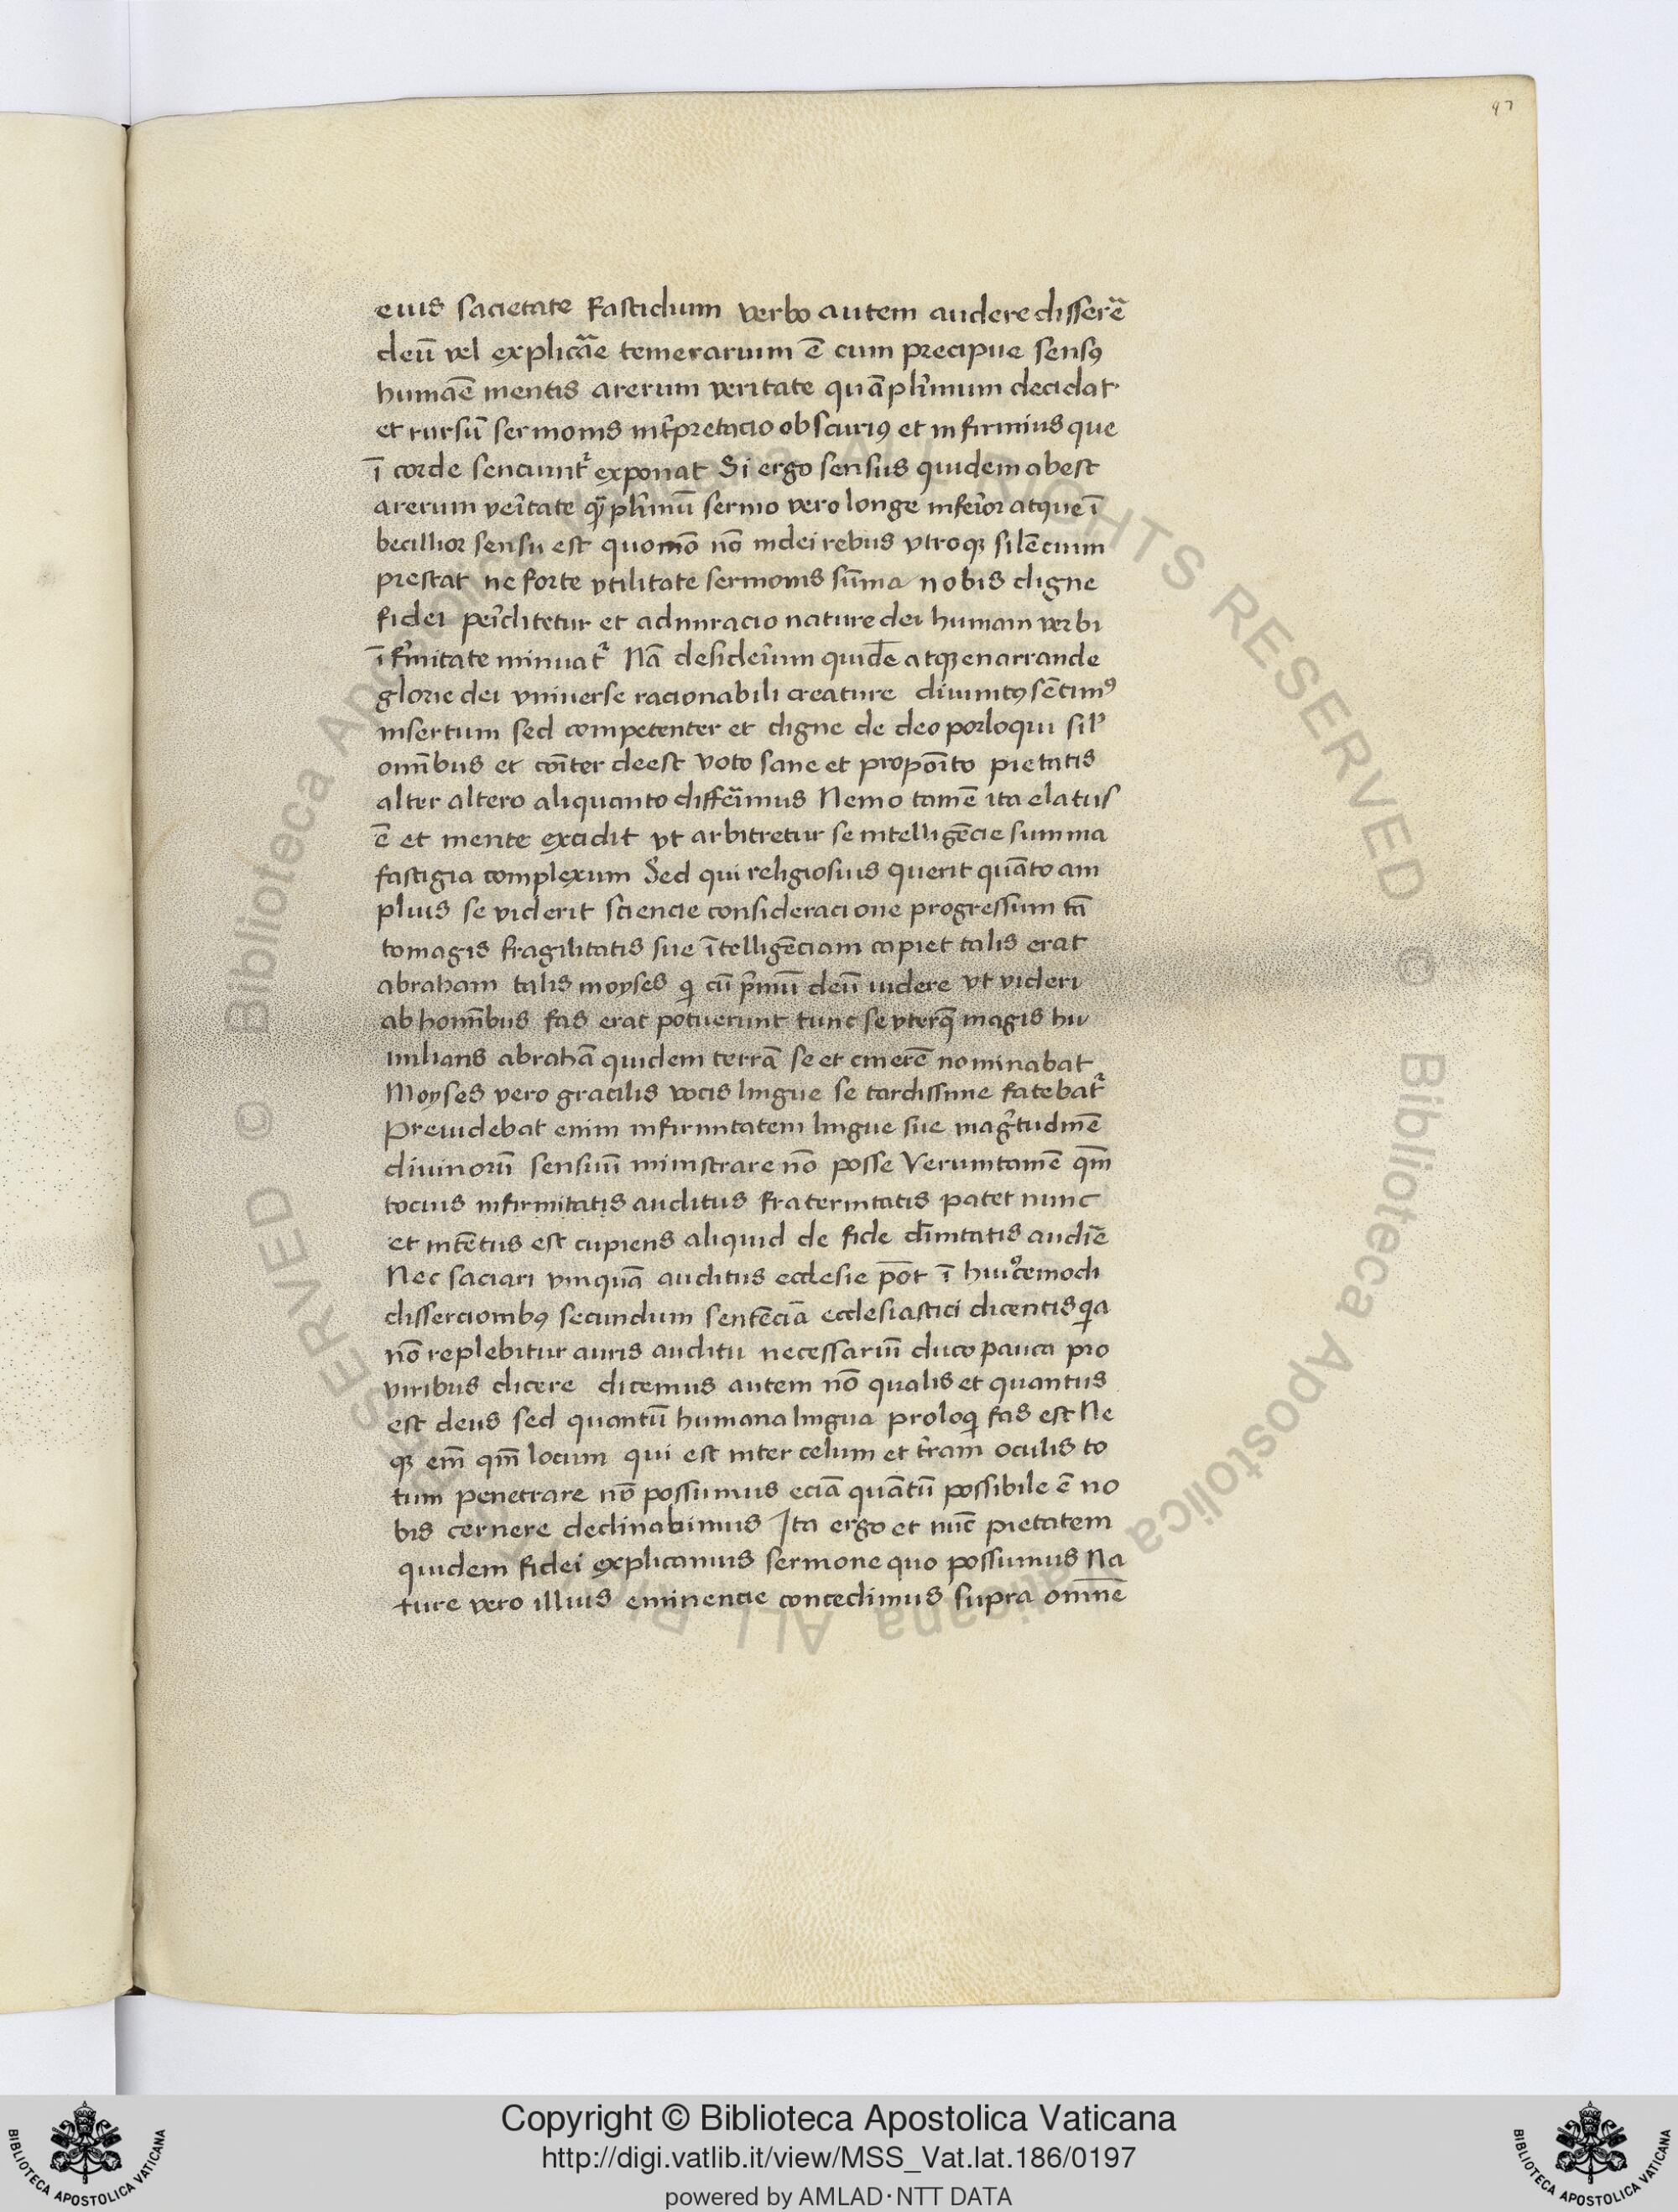 97
eius sacietate fastidium verbo autem audere disserē
deū vel explicāe temerarium ē cum precipue sensꝯ
humāe mentis arerum veritate quā plꝛimum decidat
et rursū sermonis intꝛpretacio obscuriꝯ et infirmius que
ī corde senciuntꝛ exponat Si ergo sensus quidem abest
arerum veritate quā plꝛimū sermo vero longe inferior atque ī
becillior sensu est quomō nō indei rebus vtroqꝫ silēcium
prestat ne forte vtilitate sermonis sūma nobis digne
fidei periclitetur et admiracio nature dei humani verbi
īfirmitate minuatꝛ Nā desiderium quidē atqꝫ enarrande
glorie dei vniuerse racionabili creature diuinitꝯ sētimꝯ
insertum sed competenter et digne de deo porloqui silꝛ
omībus et cōiter deest voto sane et proposito pietatis
alter altero aliquanto differimus Nemo tamē ita elatus
ē et mente excidit vt arbitretur se intelligēcie summa
fastigia complexum Sed qui religiosius querit quāto am
plius se viderit sciencie consideracione progressum tā
tomagis fragilitatis sue ītelligēciam capiet talis erat
abraham talis moyses qi cū pꝛimū deū videre vt videri
ab homībus fas erat potuerunt tunc se vterqꝫ magis hu
milians abrahā quidem terrā se et cinerē nominabat
Moyses vero gracilis vocis lingue se tardissime fatebatꝛ
Preuidebat enim infirmitatem lingue sue magītudinē
diuinorū sensuū ministrare nō posse Verumtamē qm̄
tocius infirmitatis auditus fraternitatis patet nunc
et intētus est cupiens aliquid de fide dīnitatis audīe
Nec saciari vnquā auditus ecclesie pōt ī huiꝰcemodi
dissercionibꝯ secundum sentēciā ecclesiastici dicentis qia
nō replebitur auris auditu necessariū duco pauca pro
viribus dicere dicemus autem nō qualis et quantus
est deus sed quantū humana lingua proloqi fas est Ne
qꝫ em̄ qm̄ locum qui est inter celum et tꝛram oculis to
tum penetrare nō possumus eciā quātū possibile ē no
bis cernere declinabimus Ita ergo et nūc pietatem
quidem fidei explicamus sermone quo possumus Na
ture vero illius eminencie concedimus supra omnē
© Biblioteca Apostolica Vaticana ALL RIGHTS RESERVED
© Biblioteca Apostolica Vaticana ALL RIGHTS RESERVED
BIBLIOTECA APOSTOLICA VATICANA
Copyright © Biblioteca Apostolica Vaticana
http://digi.vatlib.it/view/MSS_Vat.lat.186/0197
powered by AMLAD·NTT DATA
BIBLIOTECA APOSTOLICA VATICANA